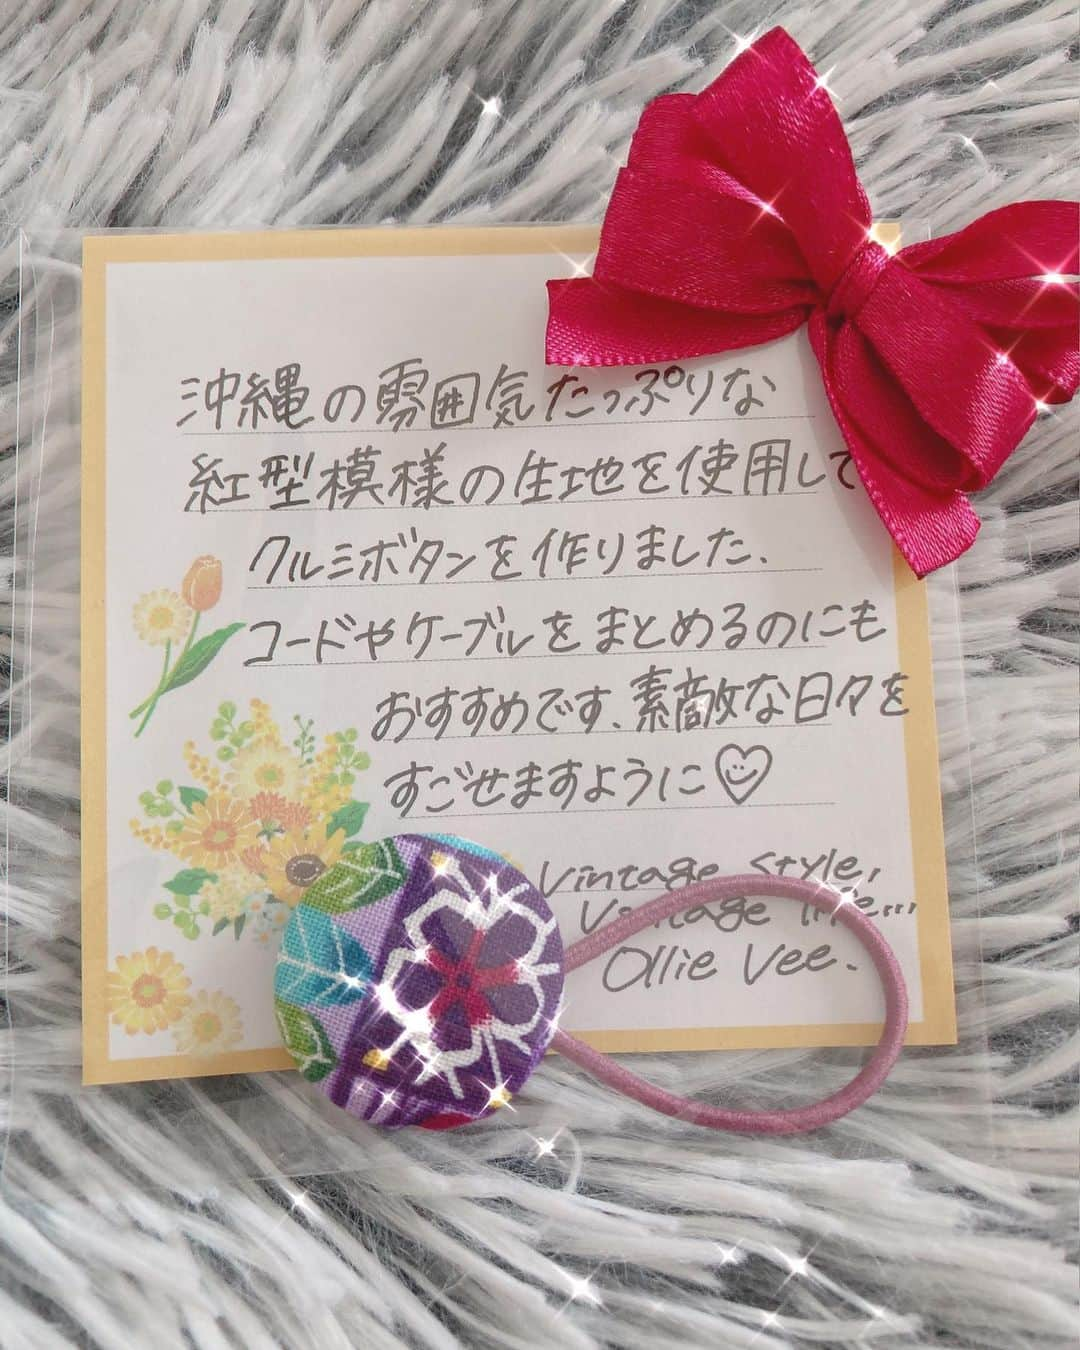 沖縄の雰囲気たっぷりな
紅型模様の生地を使用して
クルミボタンを作りました、
コードやケーブルをまとめるのにも
おすすめです、素敵な日々を
すごせますように
Vintage Style,
Vintage life...
Ollie Vee.